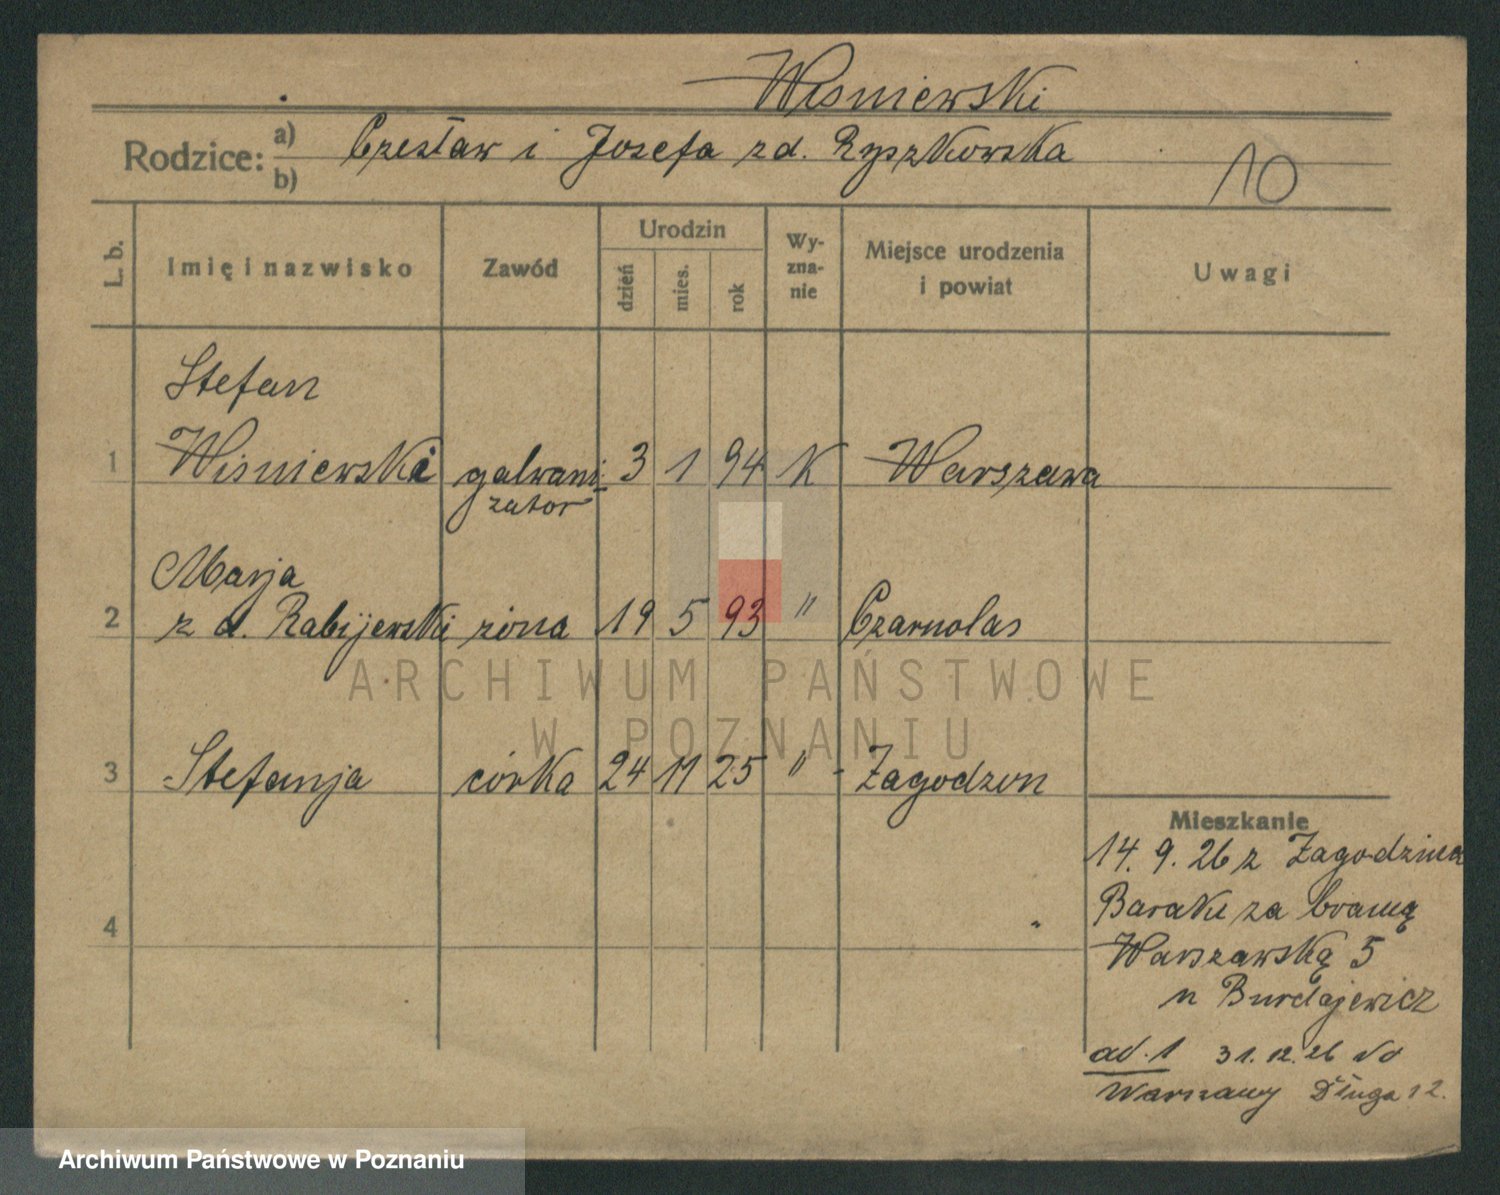 Wisniewski
Rodzice: a) Czesław i Josefa zd. Ryszkowska
b)
10
L. b.
Imię i nazwisko
Zawód
Urodzin
dzień
mies.
rok
Wy-
zna-
nie
Miejsce urodzenia
i powiat
Uwagi
Stefan
1 Wisniewski galwani- 3 1 94 K Warszawa
zator
Marja
2 z d. Rabijewski zona 19 5 93 " Czarnolas
ARCHIWUM PAŃSTWOWE
W POZNANIU
3 Stefanja córka 24 11 25 " - Zagodzon
Mieszkanie
14. 9. 26 z Zagodzina
Baraki za bramą
4
Warszawską 5
u Burdajewicz
ad. 1 31. 12. 26 do
Warszawy Długa 12.
Archiwum Państwowe w Poznaniu